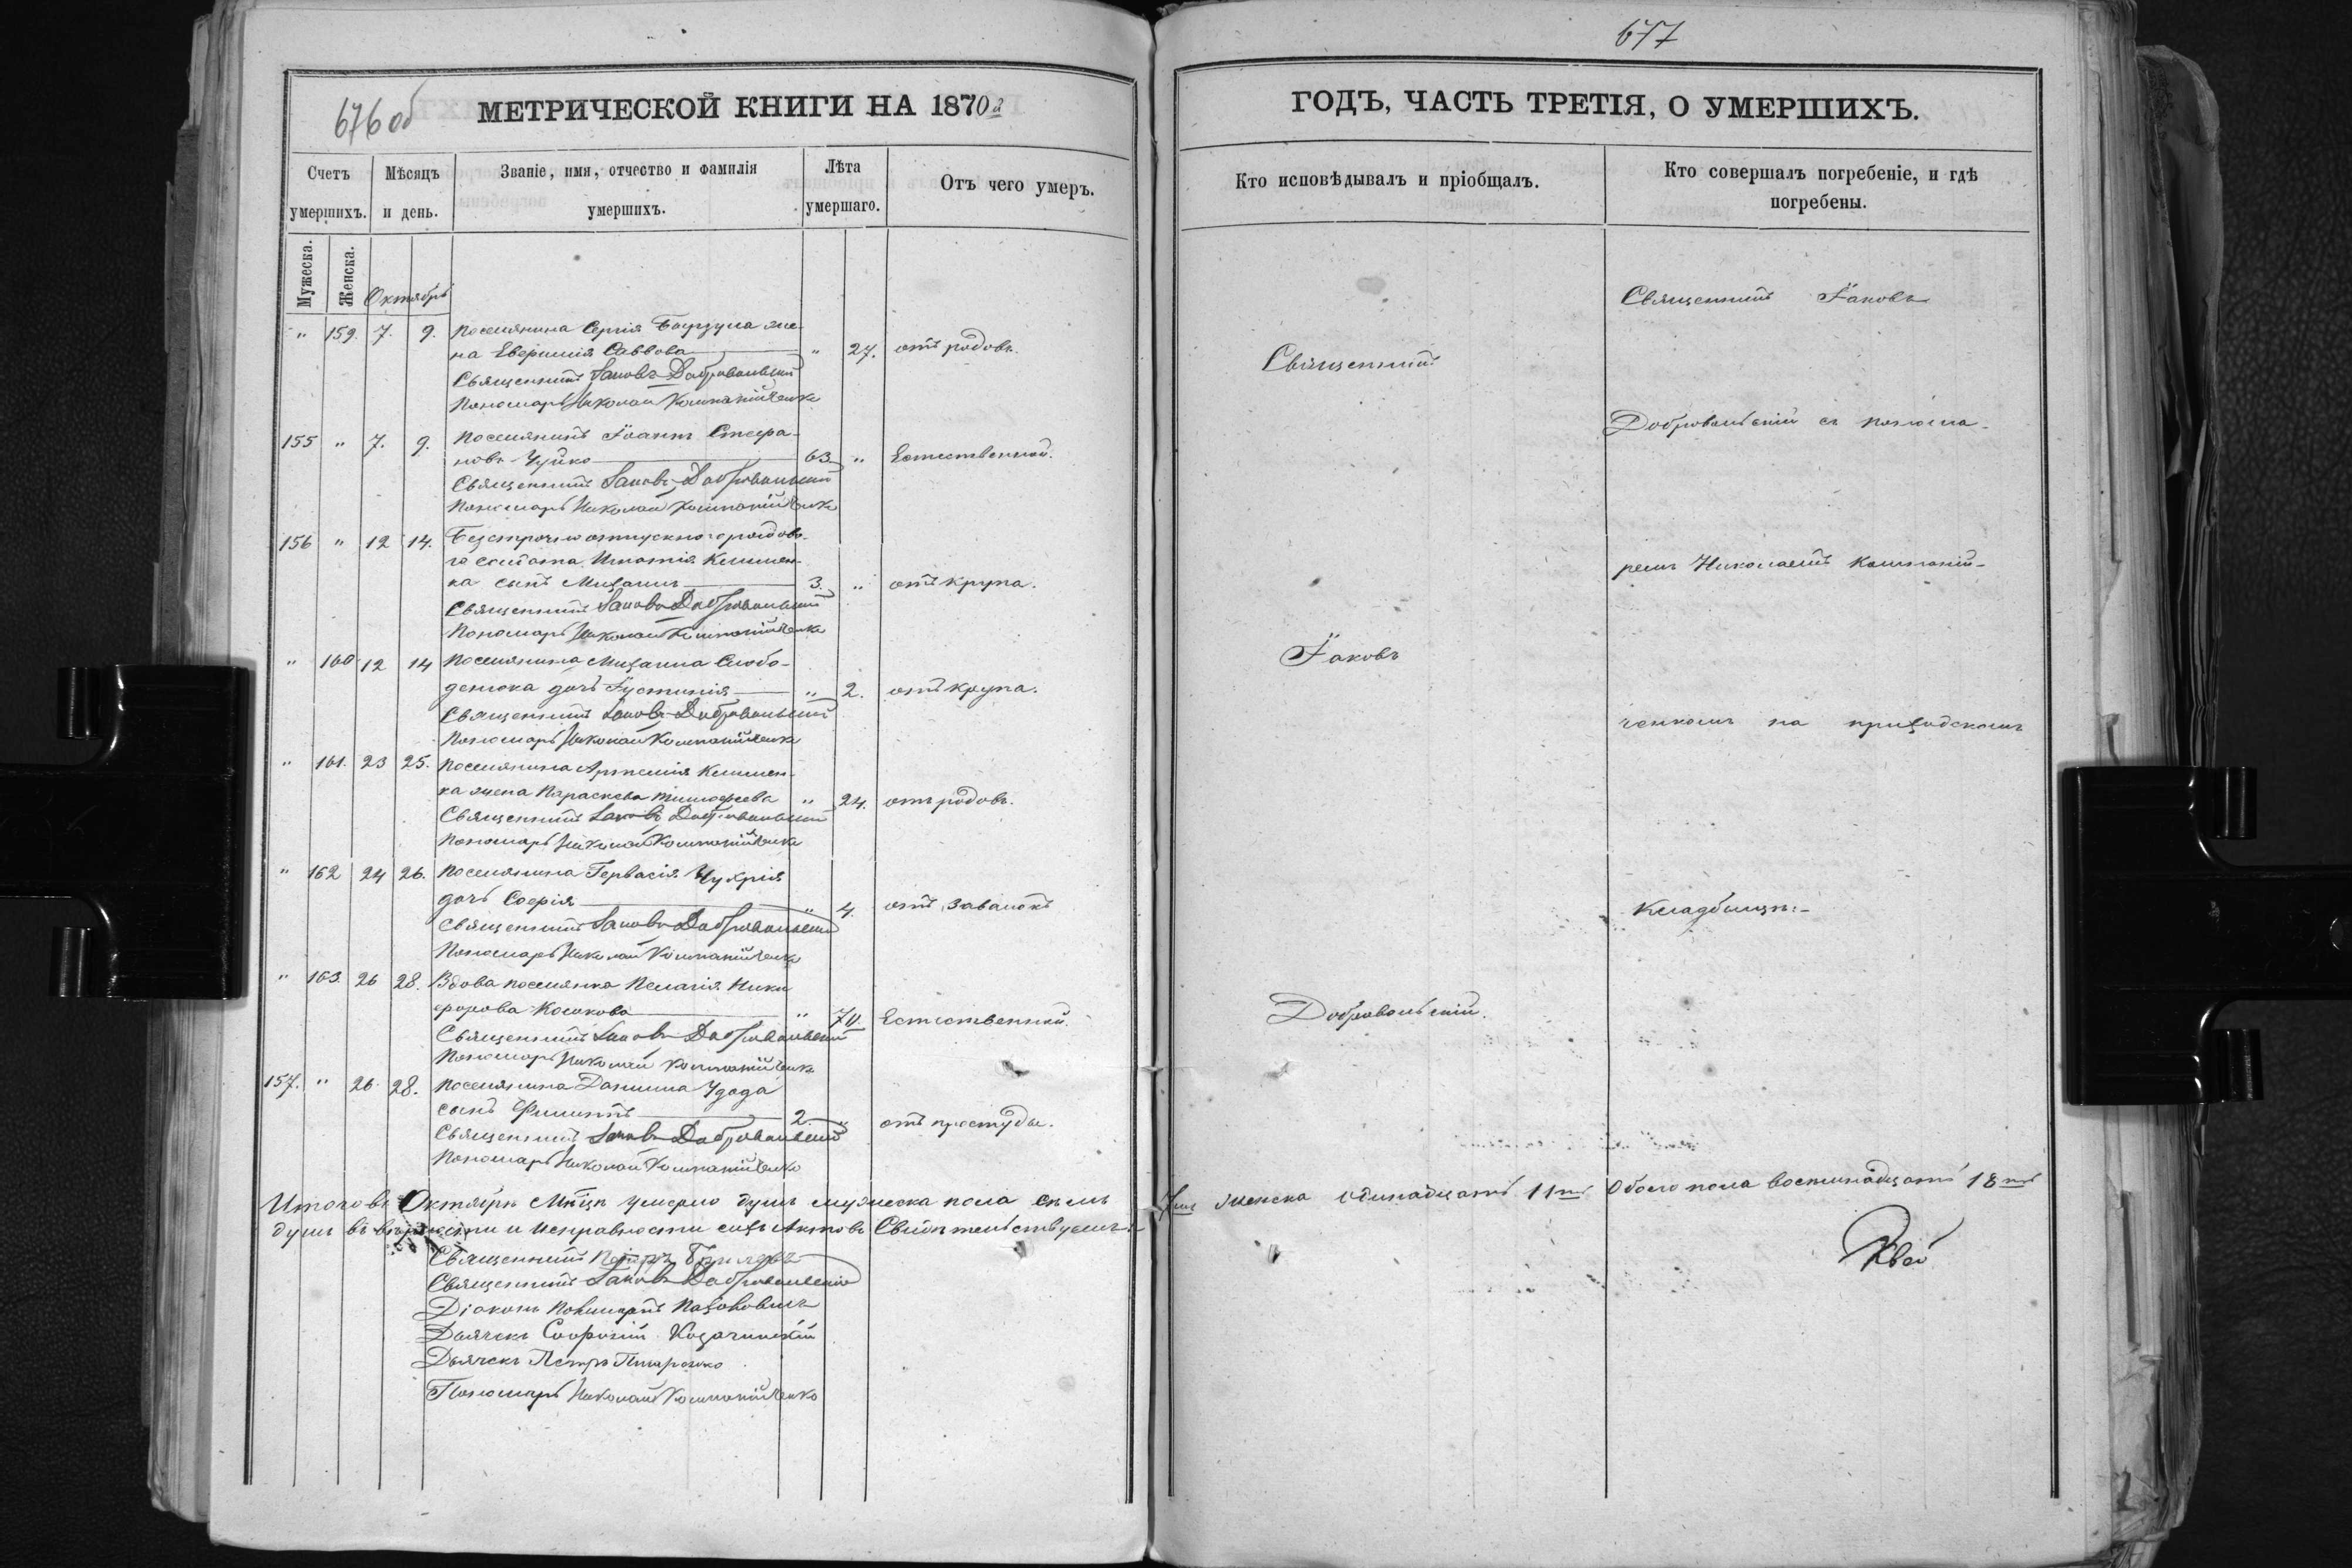 676 об
МЕТРИЧЕСКОЙ КНИГИ НА 1870й
Счетъ умершихъ.
Мѣсяцъ и день.
Званіе, имя, отчество и фамилія умершихъ.
Лѣта умершаго.
Отъ чего умеръ.
Мужеска.
Женска.
Октябрь
" 159. 7. 9. Поселянина Сергія Баузула же-
на Евфимія Саввова " 27. отъ родовъ.
Священникъ Іаковъ Добровольскій
Пономарь Николай Компанійченко
155 " 7. 9. Поселянинъ Іоаннъ Стефа-
новъ Чуйко 63 " Естественной.
Священникъ Іаковъ Добровольскій
Пономарь Николай Компанійченко
156 " 12 14. Безсрочно отпускнаго рядово-
го солдата Игнатія Климен-
ка сынъ Михаилъ 3. " отъ крупа.
Священникъ Іаковъ Добровольскій
Пономарь Николай Компанійченко
" 160 12 14 Поселянина Михаила Слобо-
денюка дочь Іустинія " 2. отъ крупа.
Священникъ Іаковъ Добровольскій
Пономарь Николай Компанійченко
" 161. 23 25. Поселянина Артемія Климен-
ка жена Параскева Тимофеева " 24. отъ родовъ.
Священникъ Іаковъ Добровольскій
Пономарь Николай Компанійченко
" 162 24 26. Поселянина Гервасія Чухрія
дочь Софія " 4. отъ завалокъ
Священникъ Іаковъ Добровольскій
Пономарь Николай Компанійченко
" 163 26 28. Вдова поселянка Пелагія Ники
форова Косокова " 70. Естественной.
Священникъ Іаковъ Добровольскій
Пономарь Николай Компанійченко
157. " 26 28. Поселянина Даниила Удода
сынъ Филиппъ 2. " отъ простуды.
Священникъ Іаковъ Добровольскій
Пономарь Николай Компанійченко
Итого въ Октябрѣ Мѣсяцѣ умерло душъ мужеска пола семь
душъ въ вѣрности и исправности сихъ Актовъ Свидѣтельствуемъ:
Священникъ
Священникъ Іаковъ Добровольскій
Діаконъ Поликарпъ Пахоновичъ
Дьячекъ Софоній Козачинскій
Дьячекъ Петръ
Пономарь Николай Компанійченко
677
ГОДЪ, ЧАСТЬ ТРЕТІЯ, О УМЕРШИХЪ.
Кто исповѣдывалъ и пріобщалъ.
Кто совершалъ погребеніе, и гдѣ погребены.
Священникъ
Іаковъ
Добровольскій.
Священникъ Іаковъ
Добровольскій съ понома-
ремъ Николаемъ Компаній-
ченкомъ на приходскомъ
кладбищѣ:-
7мь женска одинадцать 11ть Обоего пола восемнадцать 18ть